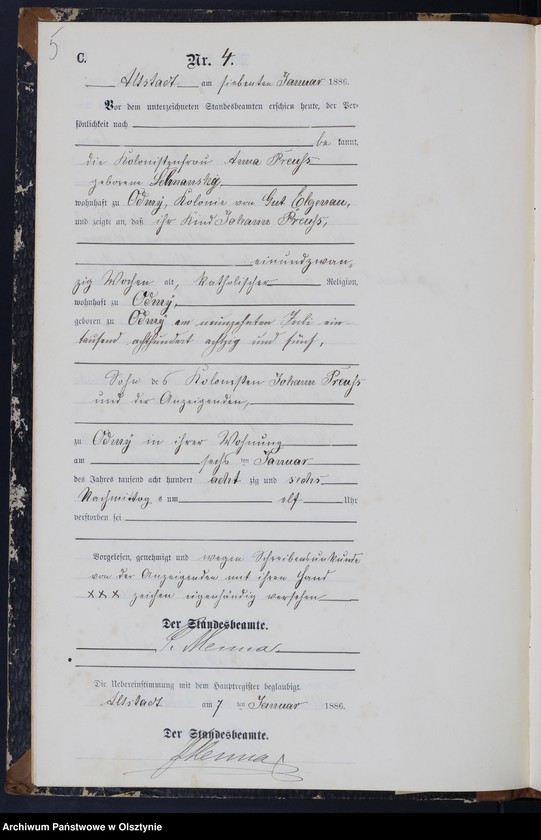 5
C.
Nr. 4.
Altstadt am siebenten Januar 1886.
Vor dem unterzeichneten Standesbeamten erschien heute, der Per-
sönlichkeit nach
be kannt,
die Kolonistenfrau Anna Preuß
geborene
wohnhaft zu Odmy, Kolonie von Gut Elgenau,
und zeigte an, daß ihr Kind Johann Preuß,
einundzwan-
zig Wochen alt, katholischer Religion,
wohnhaft zu Odmy,
geboren zu Odmy am neunzehnten Juli ein-
tausend achthundert achtzig und fünf,
Sohn des Kolonisten Johann Preuß
und der Anzeigenden,
zu Odmy in ihrer Wohnung
am sechs ten Januar
des Jahres tausend acht hundert acht zig und sechs
Nachmittag s um elf Uhr
verstorben sei
Vorgelesen, genehmigt und wegen Schreibensunkunde
von der Anzeigenden mit ihren Hand
xxx zeichen eigenhändig versehen
Der Standesbeamte.
Menna
Die Uebereinstimmung mit dem Hauptregister beglaubigt.
Altstadt am 7 ten Januar 1886.
Der Standesbeamte.
Menna
Archiwum Państwowe w Olsztynie